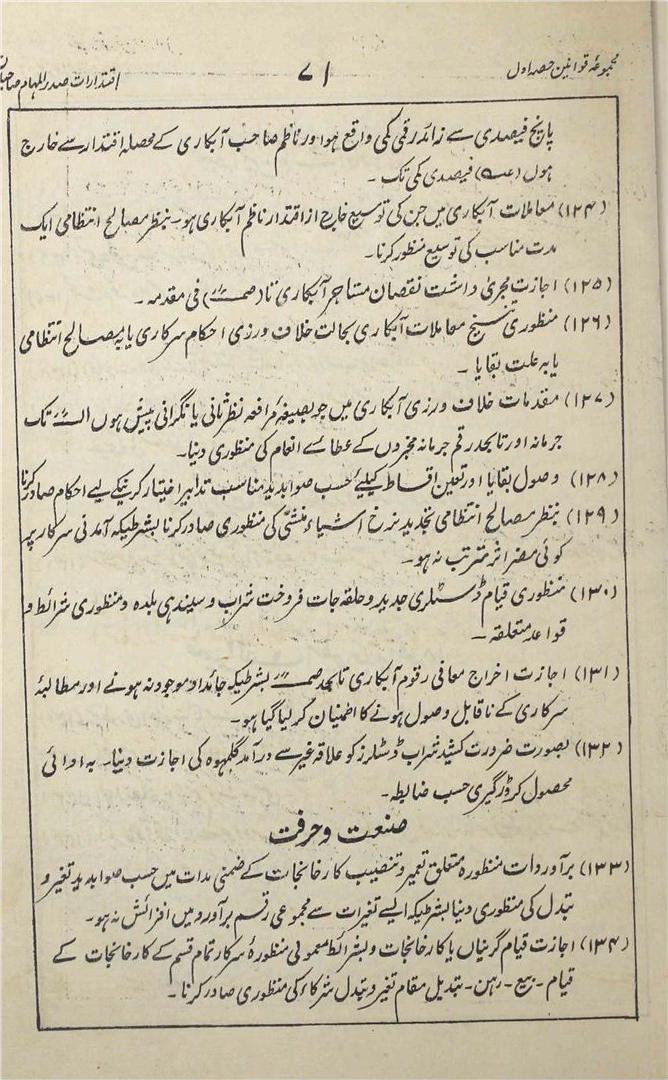 مجموعۂ قوانین حصہ اول
۷۱
اقتدارات صدرالمہام صاحبان
پانچ فیصدی سے زائد رقمی کمی واقع ہو اور ناظم صاحب آبکاری کے محصلہ اقتدار سے خارج
ہوں فیصدی کمی تک ۔
(۱۲۴) معاملات آبکاری میں جن کی توسیع خارج از اقتدار ناظم آبکاری ہو۔ بنظر مصالح انتظامی ایک
مدت مناسب کی توسیع منظور کرنا۔
(۱۲۵) اجازت مجرئی داشت نقصان مستاجر آبکاری تا فی مقدمہ ۔
(۱۲۶) منظوری تنسیخ معاملات آبکاری بحالت خلاف ورزی احکام سرکاری یا بہ مصالح انتظامی
یا بہ علت بقایا ۔
(۱۲۷) مقدمات خلاف ورزی آبکاری میں جو بصیغۂ مرافعہ نظر ثانی یا نگرانی پیش ہوں تک
جرمانہ اور تا بحد رقم جرمانہ مخبروں کے عطائے انعام کی منظوری دینا۔
(۱۲۸) وصول بقایا اور تعین اقساط کیلئے حسب صوابدید مناسب تدابیر اختیار کرنیکے لیے احکام صادر کرنا
(۱۲۹) بنظر مصالح انتظامی تجدید نرخ اشیاء منشّی کی منظوری صادر کرنا بشرطیکہ آمدنی سرکار پر
کوئی مضر اثر مترتب نہ ہو۔
(۱۳۰) منظوری قیام ڈسٹلری جدید و حلقہ جات فروخت شراب و سیندھی بلدہ و منظوری شرائط و
قواعد متعلقہ ۔
(۱۳۱) اجازت اخراج معافی رقوم آبکاری تا بحد بشرطیکہ جائداد موجود نہ ہونے اور مطالبۂ
سرکاری کے ناقابل وصول ہونے کا اطمینان کر لیا گیا ہو۔
(۱۳۲) بصورت ضرورت کشید شراب ڈسٹلرز کو علاقہ غیر سے درآمد گلمہوہ کی اجازت دینا۔ بہ ادائی
محصول کروڑگیری حسب ضابطہ۔
صنعت و حرفت
(۱۳۳) برآوردات منظورہ متعلق تعمیر و تنصیب کارخانجات کے ضمنی مدات میں حسب صوابدید تغیر و
تبدل کی منظوری دینا بشرطیکہ ایسے تغیرات سے مجموعی رقم برآورد میں افزائش نہ ہو۔
(۱۳۴) اجازت قیام گرنیاں یا کارخانجات و بشرائط معمولی منظورۂ سرکار تمام قسم کے کارخانجات کے
قیام ۔ بیع ۔ رہن ۔ تبدیل مقام تغیر و تبدل شرکاء کی منظوری صادر کرنا ۔